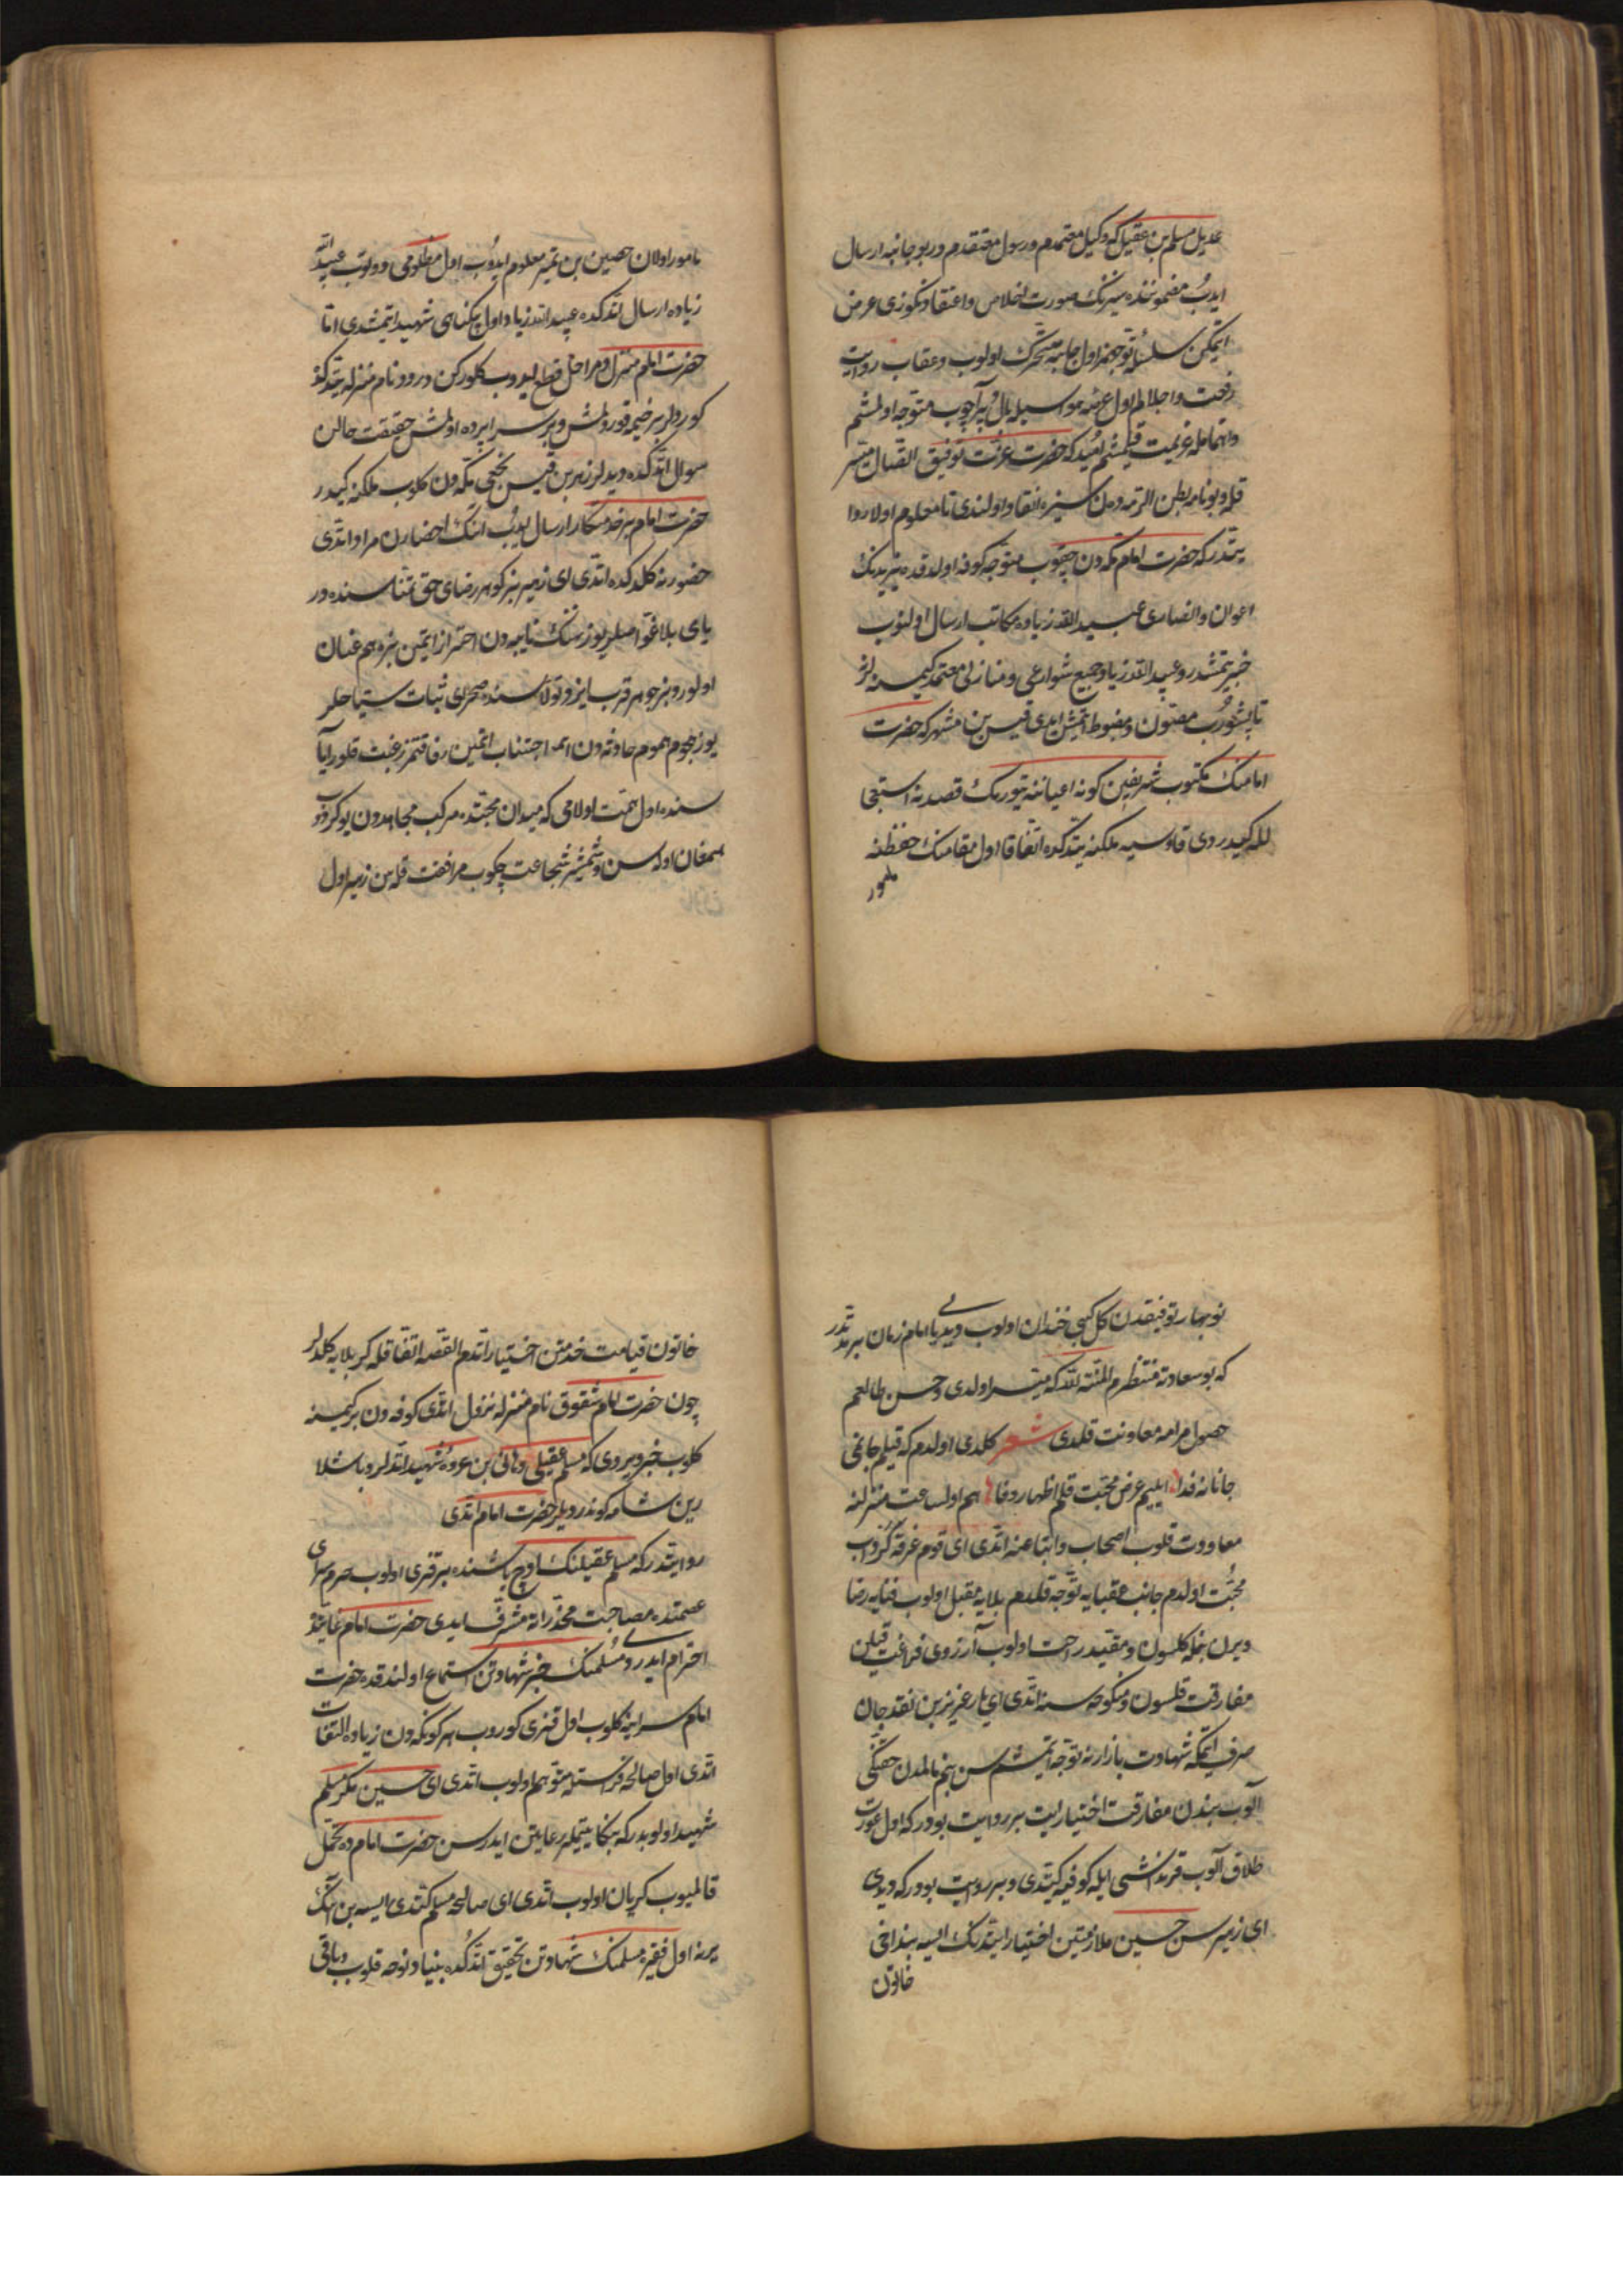 عدیل مسلم بن عقیل که وکیل معتمدم و رسول معتقدم در بو جانبه ارسال
ایدوب مضموننده سیزنک صورت اخلاص و اعتقادکوزی عرض
ایتمکین سلسلهٔ توجهم اول جانبه متحرک اولوب و عقاب رایت
رفعت و اجلالم اول عرصه هواسیله بال و پر آچوب متوجه اولمشم
و اهتمامله عزیمت قیلمشم امید که حضرت عزت توفیق اتصال میسر
قیله و بو نامه بطن الرمه دن سیزه انفاد اولندی تا معلوم اولا روا
یتدر که حضرت امام مکه دن چقوب متوجه کوفه اولدقده یزیدنک
اعوان و انصاری عبید الله زیاده مکاتب ارسال اولنوب
خبر یتمشدر و عبید الله زیاد جمیع شوارعی و منازلی معتمد کیمسه لر
تاپشوروب مصئون و مضبوط ایتمش ایدی قیس بن مشهر که حضرت
امامنک مکتوب شریفین کوفه اعیاننه یتورمک قصدنه استعجا
لله کیدردی قادسیه ملکنه یتدکده اتفاقا اول مقامنک حفظنه
مامور
مامور اولان حصین بن نمیر معلوم ایدوب اول مظلومی دوتوب عبید الله
زیاده ارسال اتدکده عبید الله زیاد اول بیکناهی شهید ایتمشدی اما
حضرت امام منزل و مراحل قطع ایدوب کلورکن درود نام منزله یتدکد
کوردلر بر خیمه قورولمش و بر سراپرده اولمش حقیقت حالن
سوال اتدکده دیدلر زهیر بن قیس بجحی مکه دن کلوب ملکنه کیدر
حضرت امام بر خدمتکار ارسال ایدوب انک احضارن مراد اتدی
حضورنه کلدکده اتدی ای زهیر هنر کوهر رضای حق تمناسنده در
یای بلا غواصلر یوز سنک نایبه دن احتراز ایتمین بزه هم عنان
اولور و بز جوهر قرب ایزد تولاسنده صحرای ثبات سیاحلر
یوز هجوم هموم حادثه دن اجتناب اتمین رفاقتمز رغبت قلور ایا
سنده اول همت اولامی که میدان محبتده مرکب مجاهدون یوکردوب
همعنان اوله سن و شمشیر شجاعت چکوب مرافقت قله سن زهیر اول
نوبهار توفیقدن کل کبی خندان اولوب دیدی یا امام زمان بر مدتدر
که بو سعادته منتظرم المنة لله که میسر اولدی و حسن طالعم
حصول مرامه معاونت قلدی شعر کلدی اولدم که قیلم جانمی
جانانه فدا ایلیم عرض محبت قلم اظهار وفا هم اول ساعت منزلنه
معاودت قلوب اصحاب و اتباعنه اتدی ای قوم غرقهٔ کرداب
محبت اولدم جانب عقبایه توجه قلدم بلایه مقبل اولوب فنایه رضا
ویرن بنمله کلسون و مقید راحت اولوب آرزوی فراغت قیلن
مفارقت قلسون و منکوحه سنه اتدی ای یار عزیز بن نقد جان
صرف ایتمکه شهادت بازارنه توجه ایتمشم سن بنم مالمدن حقنکی
آلوب بندن مفارقت اختیار ایت بر روایت بودر که اول عورت
طلاق آلوب قرنداشی ایله کوفیه کیتدی و بر روایت بودر که دیدی
ای زهیر سن حسین ملازمتین اختیار ایتدنک ایسه بن داخی
خاتون
خاتون قیامت خدمتن اختیار اتدم القصه اتفاقله کربلایه کلدلر
چون حضرت امام شقوق نام منزله نزول اتدی کوفه دن بر کیمسنه
کلوب خبر ویردی که مسلم عقیلی و هانی بن عروه شهید اتدلر و باشلا
رین شامه کوندردیلر حضرت امام اتدی
روایتدر که مسلم عقیلنک اوچ یاشنده بر قزی اولوب حرم سرای
عصمتده مصاحبت مخدراته مشرف ایدی حضرت امام غایتده
احترام ایدردی مسلمنک خبر شهادتن استماع اولندقده حضرت
امام سراینه کلوب اول قزی کوروب هر کونکدن زیاده التفات
اتدی اول صالحه فراستله متوهم اولوب اتدی ای حسین مکر مسلم
شهید اولوبدر که بنکا یتیمله رعایتن ایدرسن حضرت امامده تحمل
قالمیوب کریان اولوب اتدی ای صالحه مسلم کتدی ایسه بن انک
یرنه اول فقیره مسلمنک شهادتن تحقیق اتدکده بنیاد نوحه قلوب و باقی